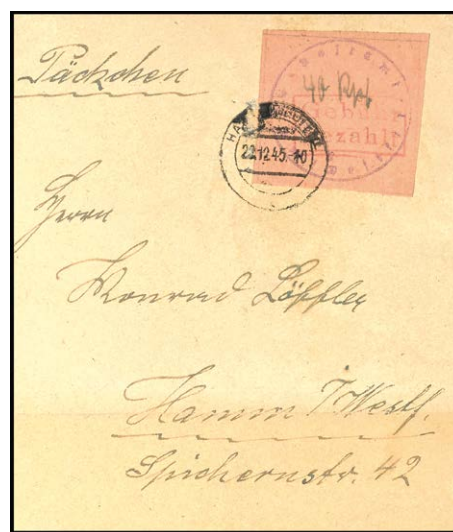 Päckchen
40 Rpf.
Gebühr
bezahlt
22.12.45.-10
Herrn
Konrad Löffler
Hamm i/Westf.
Spichernstr. 42